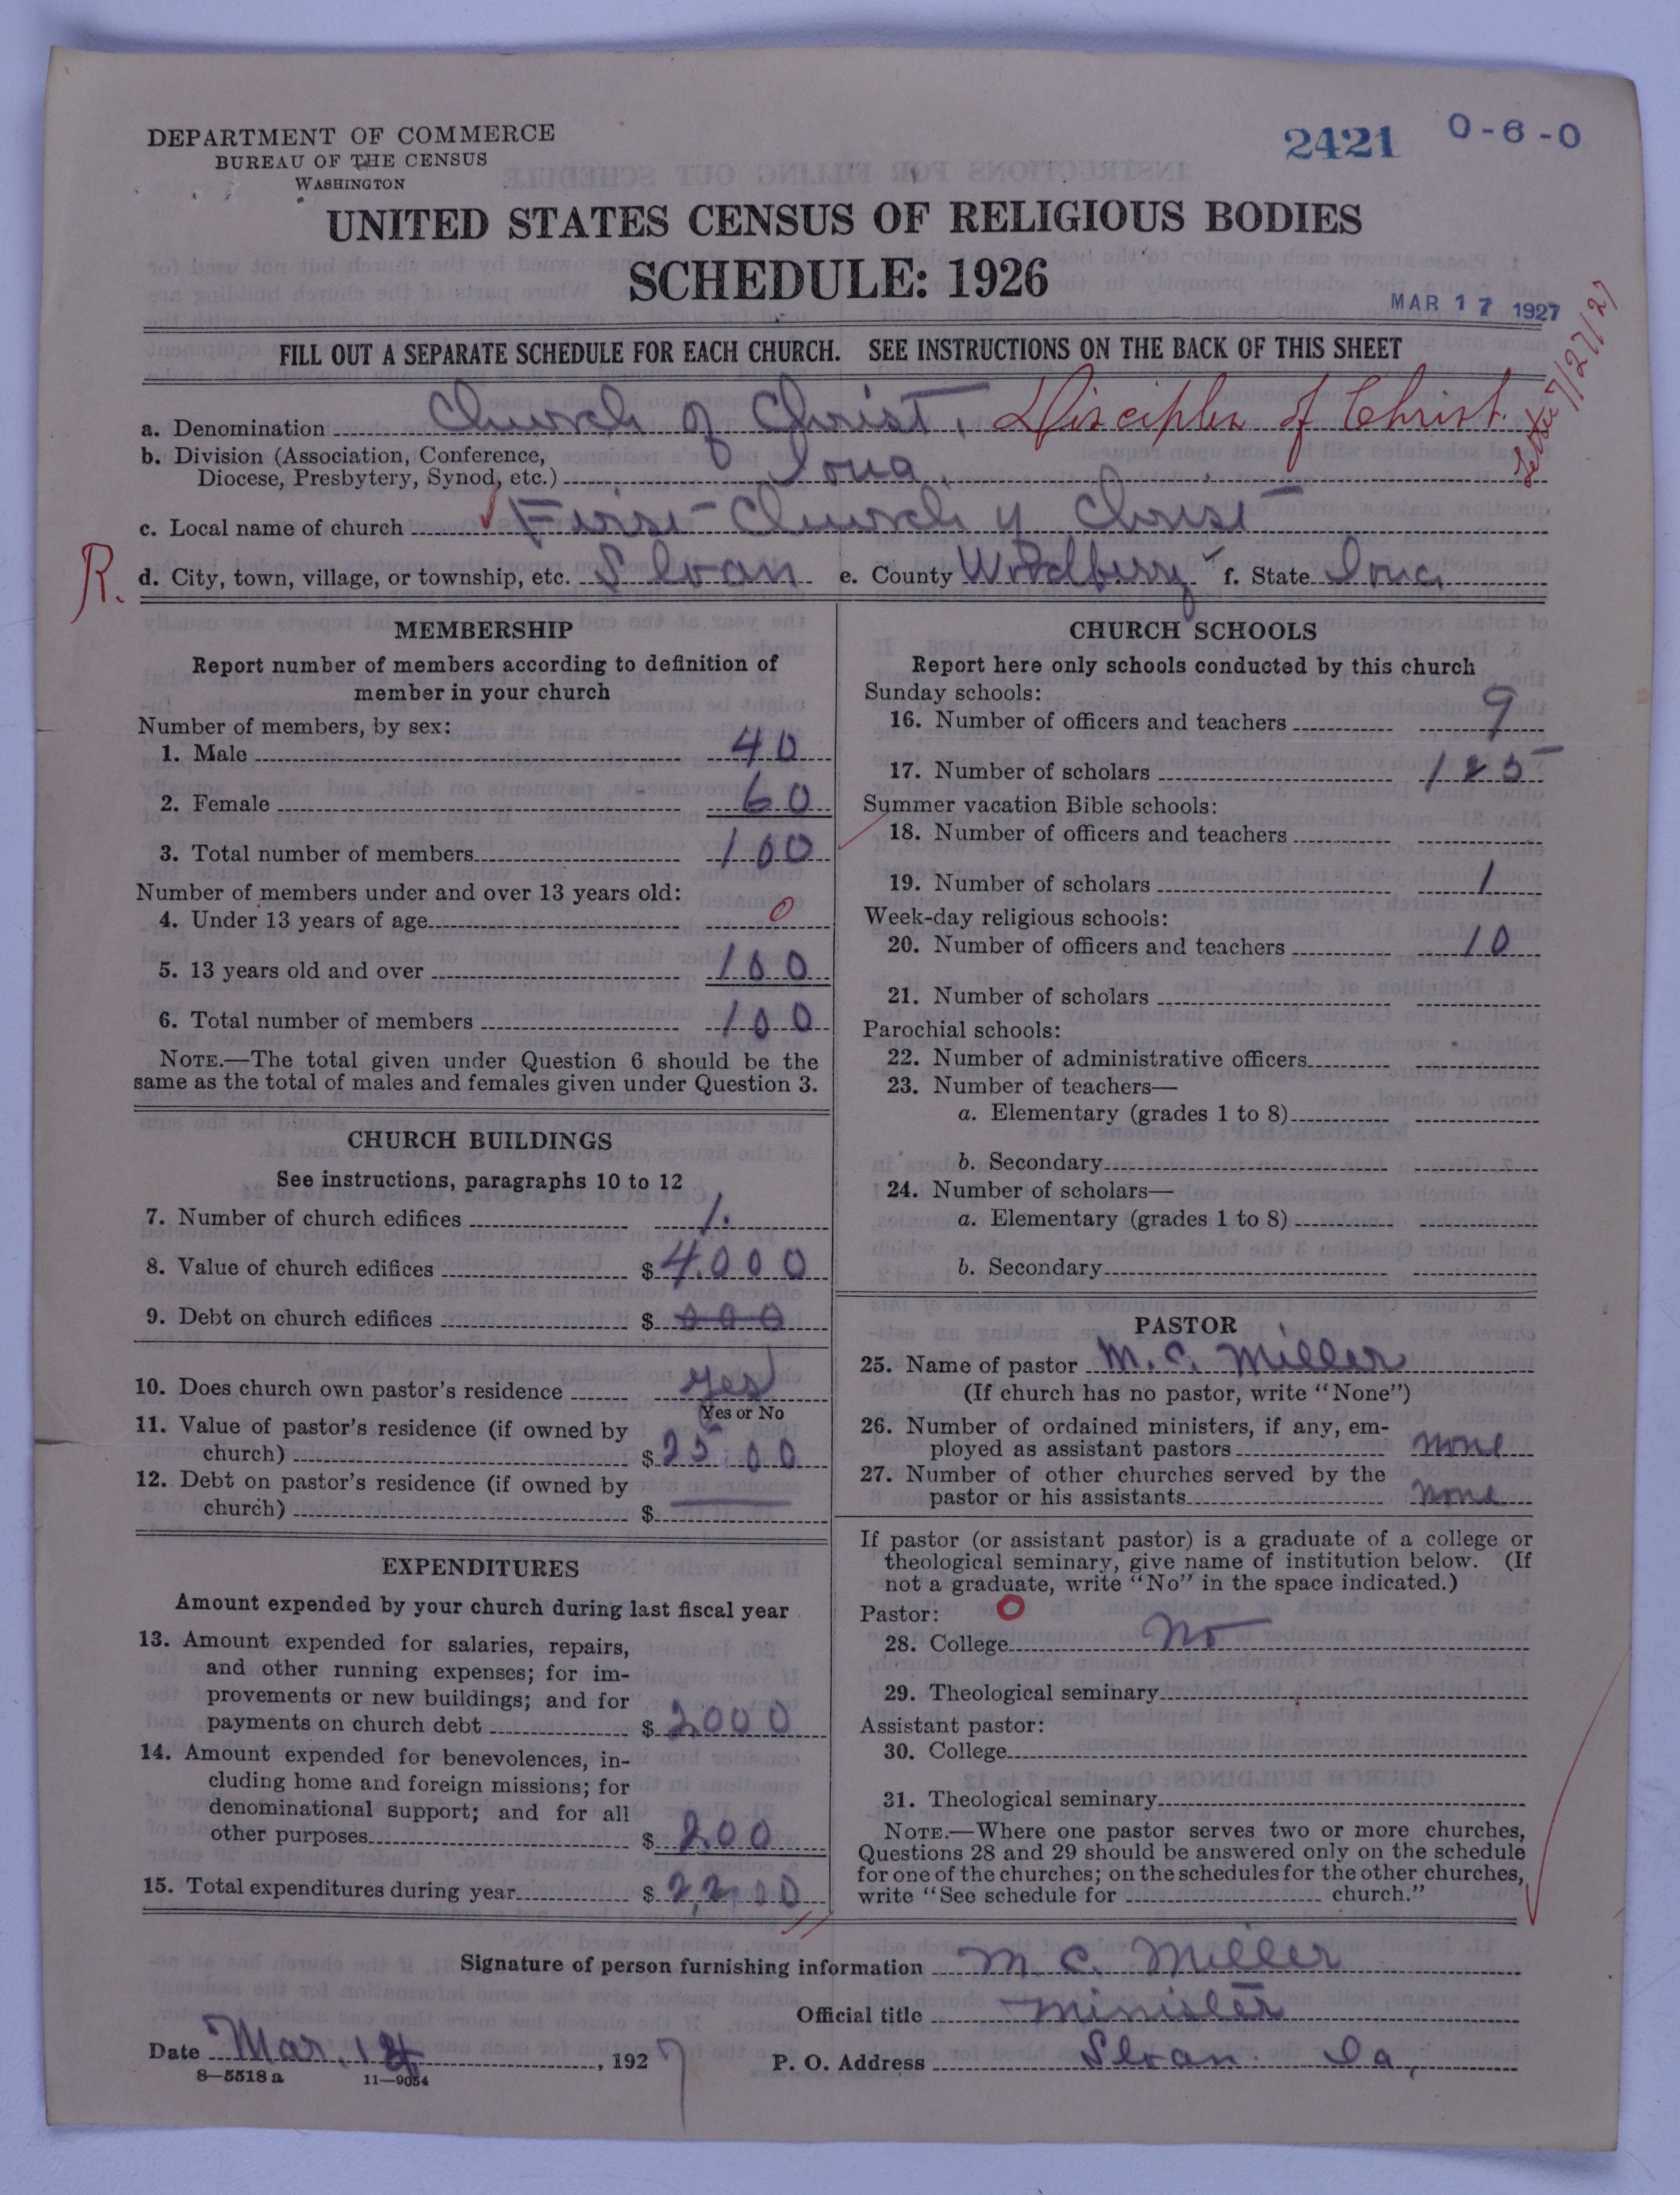 DEPARTMENT OF COMMERCE
BUREAU OF THE CENSUS
WASHINGTON
2421 0-6-0
UNITED STATES CENSUS OF RELIGIOUS BODIES
SCHEDULE: 1926
MAR 17 1927
FILL OUT A SEPARATE SCHEDULE FOR EACH CHURCH. SEE INSTRUCTIONS ON THE BACK OF THIS SHEET
7/27/27
a. Denomination Church of Christ, Disciples of Christ.
b. Division (Association, Conference,
Diocese, Presbytery, Synod, etc.) Iowa
c. Local name of church First Church of Christ
R.
d. City, town, village, or township, etc. Sloan e. County Woodberry f. State Iowa
MEMBERSHIP
Report number of members according to definition of
member in your church
Number of members, by sex:
1. Male 40
2. Female 60
3. Total number of members 100
Number of members under and over 13 years old:
4. Under 13 years of age 0
5. 13 years old and over 100
6. Total number of members 100
NOTE.—The total given under Question 6 should be the
same as the total of males and females given under Question 3.
CHURCH BUILDINGS
See instructions, paragraphs 10 to 12
7. Number of church edifices 1.
8. Value of church edifices $ 4000
9. Debt on church edifices $ 000
10. Does church own pastor's residence yes
Yes or No
11. Value of pastor's residence (if owned by
church) $ 2500
12. Debt on pastor's residence (if owned by
church) $
EXPENDITURES
Amount expended by your church during last fiscal year
13. Amount expended for salaries, repairs,
and other running expenses; for im-
provements or new buildings; and for
payments on church debt $ 2000
14. Amount expended for benevolences, in-
cluding home and foreign missions; for
denominational support; and for all
other purposes $ 200
15. Total expenditures during year $ 2,200
CHURCH SCHOOLS
Report here only schools conducted by this church
Sunday schools:
16. Number of officers and teachers 9
17. Number of scholars 125
Summer vacation Bible schools:
18. Number of officers and teachers
19. Number of scholars 1
Week-day religious schools:
20. Number of officers and teachers 10
21. Number of scholars
Parochial schools:
22. Number of administrative officers
23. Number of teachers—
a. Elementary (grades 1 to 8)
b. Secondary
24. Number of scholars—
a. Elementary (grades 1 to 8)
b. Secondary
PASTOR
25. Name of pastor M. C. Miller
(If church has no pastor, write "None")
26. Number of ordained ministers, if any, em-
ployed as assistant pastors none
27. Number of other churches served by the
pastor or his assistants none
If pastor (or assistant pastor) is a graduate of a college or
theological seminary, give name of institution below. (If
not a graduate, write "No" in the space indicated.)
Pastor: O
28. College No
29. Theological seminary
Assistant pastor:
30. College
31. Theological seminary
NOTE.—Where one pastor serves two or more churches,
Questions 28 and 29 should be answered only on the schedule
for one of the churches; on the schedules for the other churches,
write "See schedule for church."
Signature of person furnishing information M. C. Miller
Official title minister
Date Mar. 14, 1927 P. O. Address Sloan Ia,
8—5518 a 11—9054